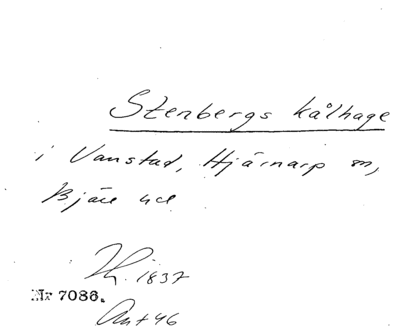 Stenbergs kålhage
i Vanstad, Hjärnarp sn,
Bjäre hd
1837
Nr 7086.
Ant 46